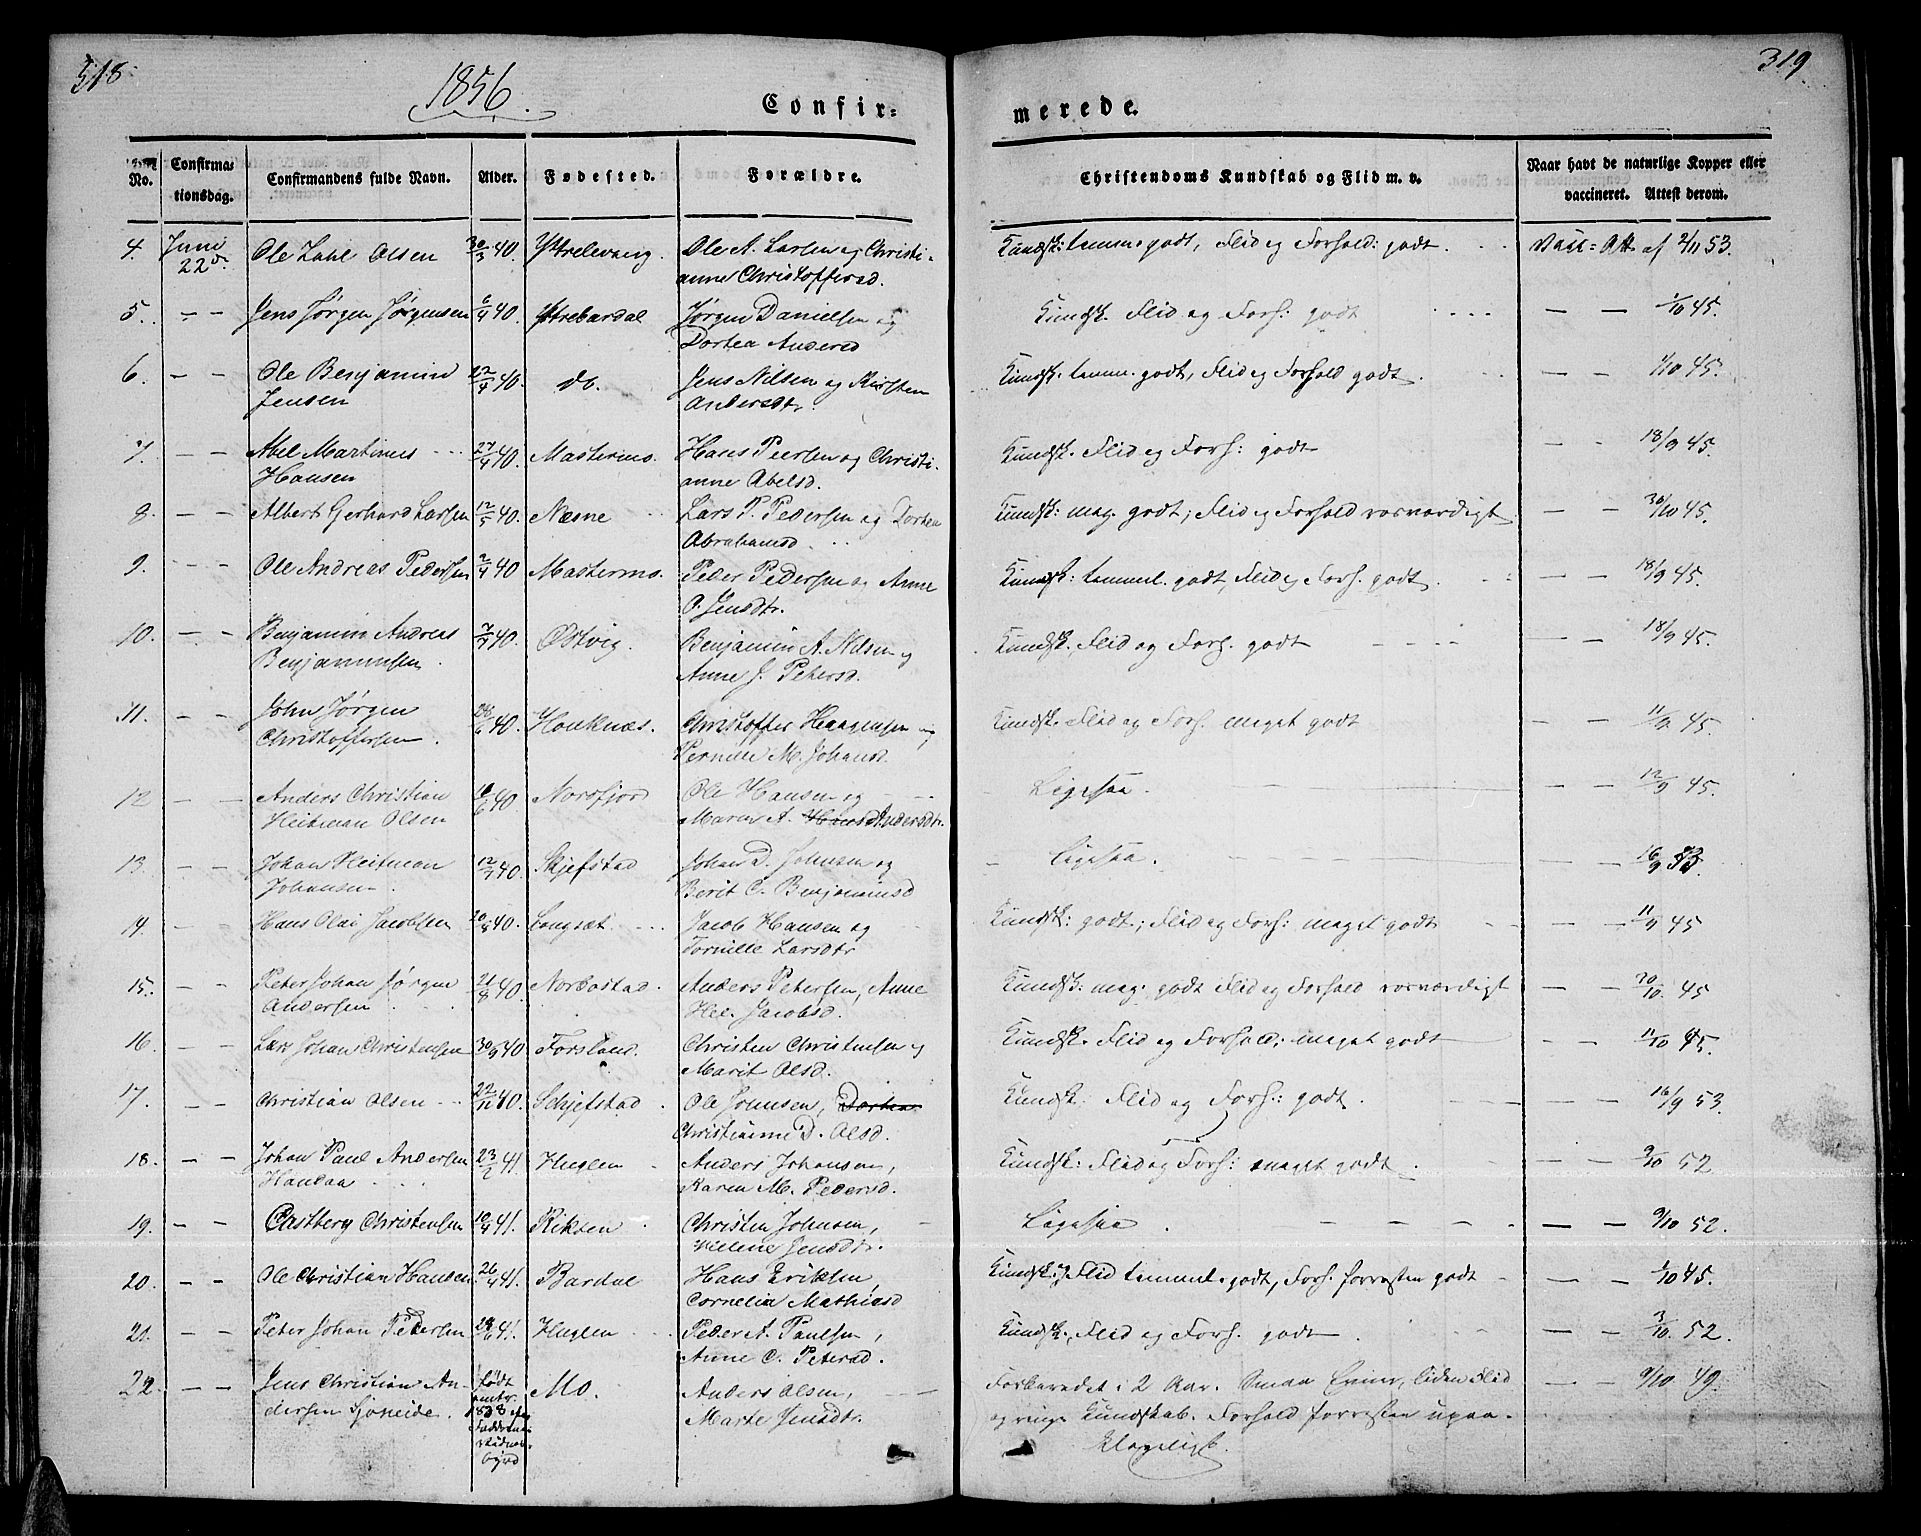 318.
1856.
Confir=
merede.
319.
No.
Confirma=
tionsdag.
Confirmandens fulde Navn.
Alder.
Fødested.
Forældre.
Christendoms Kundskab og Flid m. v.
Naar havt de naturlige Kopper eller
vaccineret. Attest derom.
4. Juni Ole Olsen 30/3 40. Ole A. Larsen og Christi- Kundsk: temm. godt, Flid og Forhold: godt. Vacc: Att. af 2/11 53.
22d. anne Christoffersd.
5. — — Jens Jørgen Jørgensen 6/4 40. Ytrebardal Jørgen Danielsen og Kundsk. Flid og Forh: godt — — 1/10 45.
Dortea Andersd
6. — — Ole Benjamin 22/4 40. do. Jens Nilsen og Kirsten Kundsk. temm. godt, Flid og Forhold godt. — — 1/10 45.
Jensen Andersdtr.
7. — — Abel Martinus 27/4 40. Mastermo. Hans Peersen og Christi- Kundsk. Flid og Forh: godt — — 18/9 45.
Hansen anne Abelsd.
8. — — Albert Gerhard Larsen 12/5 40. Næsne Lars P. Pedersen og Dortea Kundsk: meg. godt, Flid og Forhold rosværdigt — — 30/10 45.
Abrahamsd
9. — — Ole Andreas Pedersen 2/4 40 Mastermo. Peder Pedersen og Anne Kundsk: temmel. godt, Flid og Forh. godt. — — 18/9 45.
O. Jensdtr.
10. — — Benjamin Andreas 7/7 40. Østvig. Benjamin A. Nilsen og Kundsk. Flid og Forh. godt — — 18/9 45.
Benjaminsen. Anne J. Petersd.
11. — — John Jørgen 40. Houknæs. Christoffer Haagensen og Kundsk. Flid og Forh. meget godt — — 11/9 45.
Christoffersen. Pernille M. Johansd.
12 — — Anders Christian 40 Nordfjord Ole Hansen og Ligesaa. — — 12/9 45.
Heitman Olsen Maren A. Hansd Andersdtr.
13. — — Johan Heitman 12/7 40. Skjefstad Johan D. Johnsen og Ligesaa. — — 16/9 53.
Johansen Berit C. Benjaminsd
14. — — Hans Olai Jacobsen 20/8 40. Langsæt. Jacob Hansen og Kundsk: godt; Flid og Forh: meget godt — — 11/9 45
Larsdtr
15. — — Peter Johan Jørgen 21/8 40. Norbostad. Anders Petersen, Anne Kundsk: meg. godt Flid og Forhold rosværdigt — — 30/10. 45
Andersen Hel. Jacobsd.
16. — — Lars Johan Christensen 30/9 40. Forsland. Christen Christensen og Kundsk. Flid og Forhold: meget godt — — 11/10 45.
Marit Olsd.
17. — — Christian Olsen 22/11 40. Schjefstad Ole Johnsen, Dortea Kundsk. Flid og Forh: godt. — — 16/9 53.
Christianne D. Olsd.
18. — — Johan Paul Andersen 23/2 41. Huglen Anders Johansen, Kundsk: Flid og Forh: meget godt. — — 9/10 52
Karen M. Pedersd.
19. — — Castberg Christensen 10/4 41. Christen Johnsen, Ligesaa. — — 9/10 52.
Helene Jensdtr.
20. — — Ole Christian Hansen 26/4 41. Bardal Hans Eriksen, Kundsk. og Flid temmel. godt, Forh. forresten godt — — 1/10 45.
Cornelia Mathiasd
21. — — Peter Johan Pedersen 41. Huglen Peder A. Paulsen, Kundsk., Flid og Forh. godt — — 3/10. 52.
Anne C. Petersd.
22. — — Jens Christian An- født Mo. Anders Olsen, Forberedet i 2 Aar. Smaa Evner, liden Flid — — 9/10 49.
dersen 1838 Marte Jensdtr. og ringe Kundskab. Forhold forresten upaa-
klageligt.